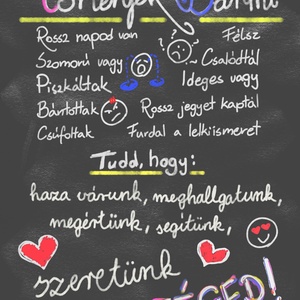 Történjék Bármi
Rossz napod van Félsz
Szomorú vagy Csalódtál
Piszkáltak Ideges vagy
Bántottak Rossz jegyet kaptál
Csúfoltak Furdal a lelkiismeret
Tudd, hogy:
haza várunk, meghallgatunk,
megértünk, segítünk,
szeretünk
TÉGED!